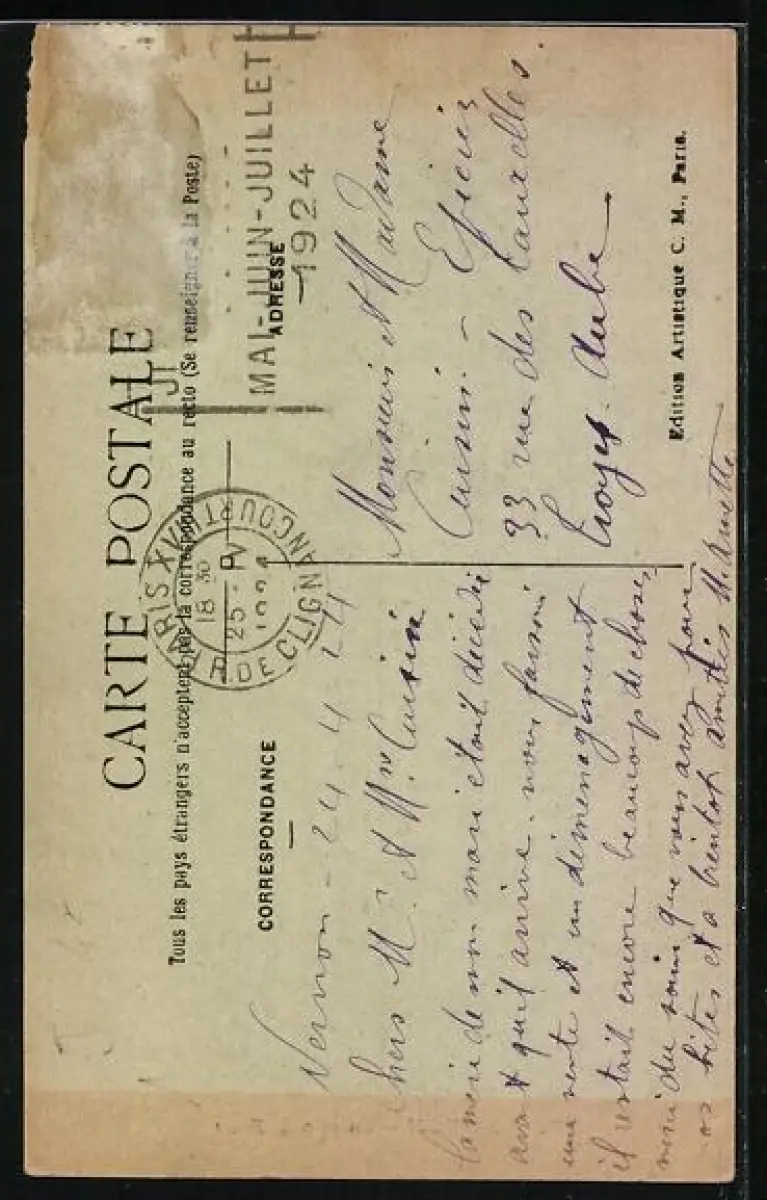 CARTE POSTALE
Tous les pays étrangers n'acceptent pas la correspondance au recto (Se renseigner à la Poste)
CORRESPONDANCE
ADRESSE
PARIS XVIII
18 30
25 - IV
1924
R. DE CLIGNANCOURT
MAI-JUIN-JUILLET
1924
Vernon - 24 - 4 - 24
chers Mr et Mme Cuisin
la mère de mon mari était décédée
avant qu'il arrive. nous faisons
une vente et un démenagement
il restait encore beaucoup de choses,
merci du soin que vous avez pour
nos bêtes et a bientot amitiés
Monsieur et Madame
Cuisin - Epicier
33 rue des
Troyes. Aube
Edition Artistique C. M., Paris.